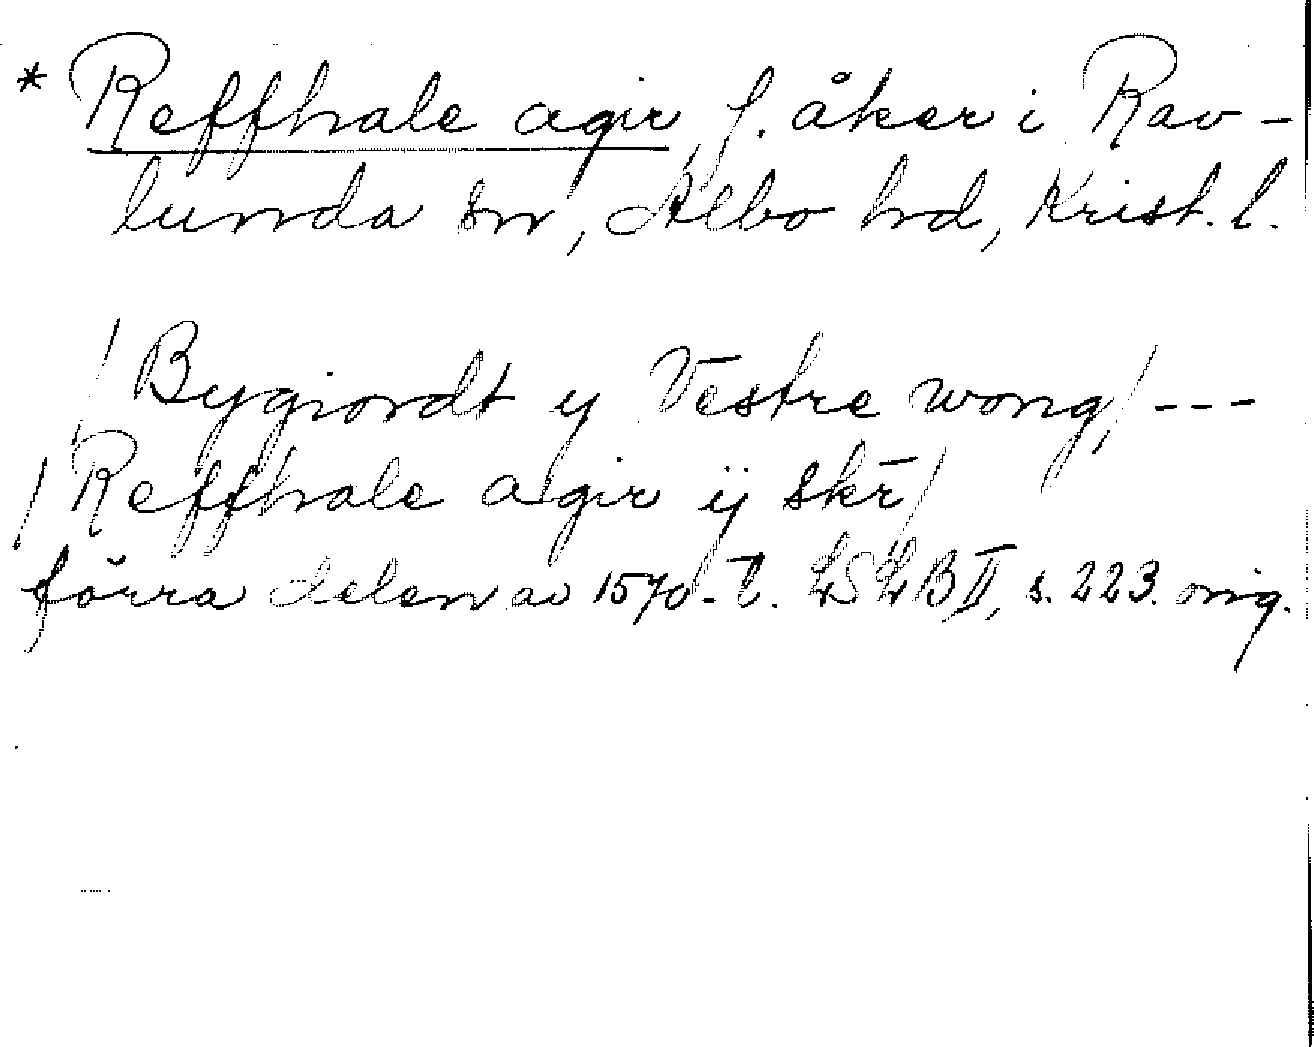 * Reffhale agir f. åker i Rav-
lunda sn, Albo hd, Krist. l.
/Bygiordt y Vestre wong/ ---
/Reffhale agir ÿ skr̄/
förra delen av 1570-t. LSLB II, s. 223. orig.